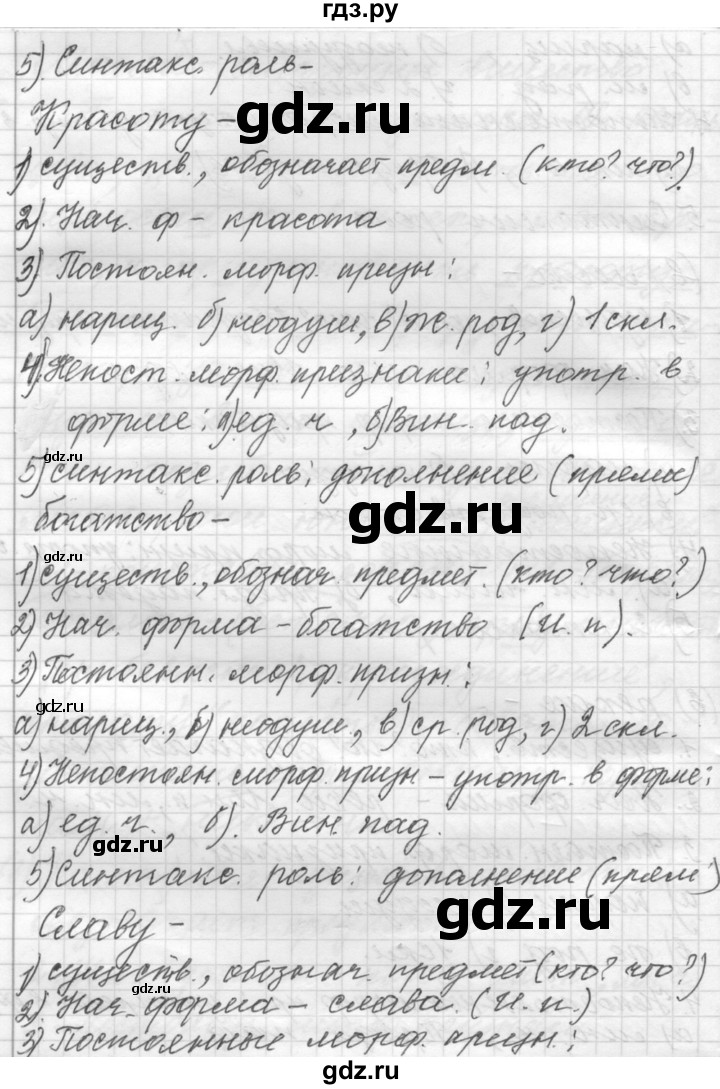 гдз.ру
5) Синтакс. роль-
Красоту-
gdz.ru
1) существ., обозначает предм. (кто? что?).
gdz.ru
2). Нач. ф - красота
3) Постоян. морф. призн:
а) нариц. б) неодуш, в) ж. род, г) 1 скл.
gdz.ru
4) Непост. морф. признаки: употр. в
форме: а) ед. ч, б) Вин. пад.
gdz.ru
5) синтакс. роль: дополнение (прямы)
богатство-
gdz.ru
1) существ., обознач. предмет. (кто? что?)
gdz.ru
2) Нач. форма - богатство (И. п).
3) Постоянн. морф. призн.:
gdz.ru
а) нариц., б) неодуш., в) ср. род, г) 2 скл.
4) Непостоян. морф. призн - употр. в форме:
а) ед. ч., б). Вин. пад.
gdz.ru
5) Синтакс. роль: дополнение (прям)
Славу-
gdz.ru
1) существ., обознач. предмет (кто? что?)
gdz.ru
2). Нач. форма - слава. (И. п.)
3) Постоянные морф. призн.:
gdz.ru